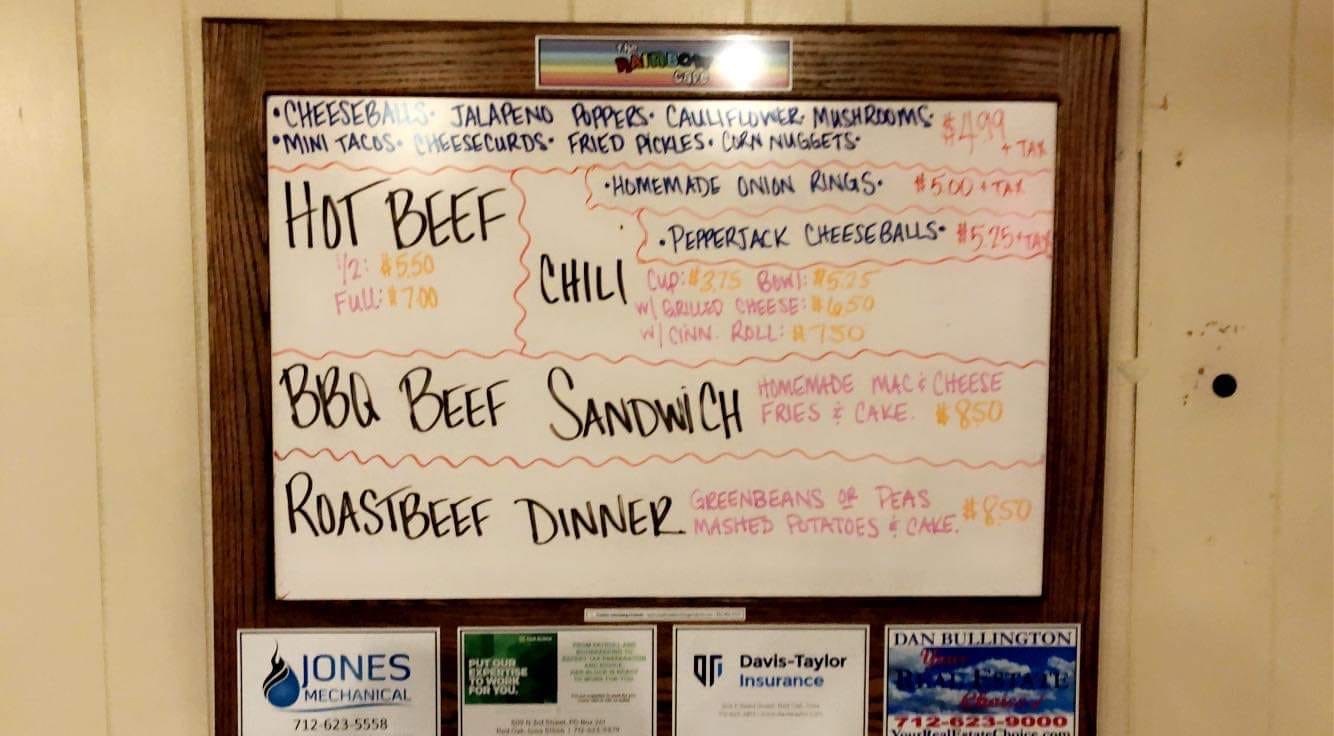 The
RAINBOW
CAFE
•CHEESEBALLS• JALAPENO POPPERS• CAULIFLOWER• MUSHROOMS• $4.99
•MINI TACOS• CHEESECURDS• FRIED PICKLES• CORN NUGGETS• + TAX
•HOMEMADE ONION RINGS• $5.00 + TAX
•PEPPERJACK CHEESEBALLS• $5.25 + TAX
HOT BEEF
1/2: $5.50
FULL: $7.00
CHILI
CUP: $3.75 BOWL: $5.25
W/ GRILLED CHEESE: $6.50
W/ CINN. ROLL: $7.50
BBQ BEEF SANDWICH
HOMEMADE MAC & CHEESE
FRIES & CAKE. $8.50
ROASTBEEF DINNER
GREENBEANS OR PEAS
MASHED POTATOES & CAKE. $8.50
JONES
MECHANICAL
712-623-5558
PUT OUR
EXPERTISE
TO WORK
FOR YOU.
Davis-Taylor
Insurance
DAN BULLINGTON
Your
REAL ESTATE
Choice!
712-623-9000
YourRealEstateChoice.com